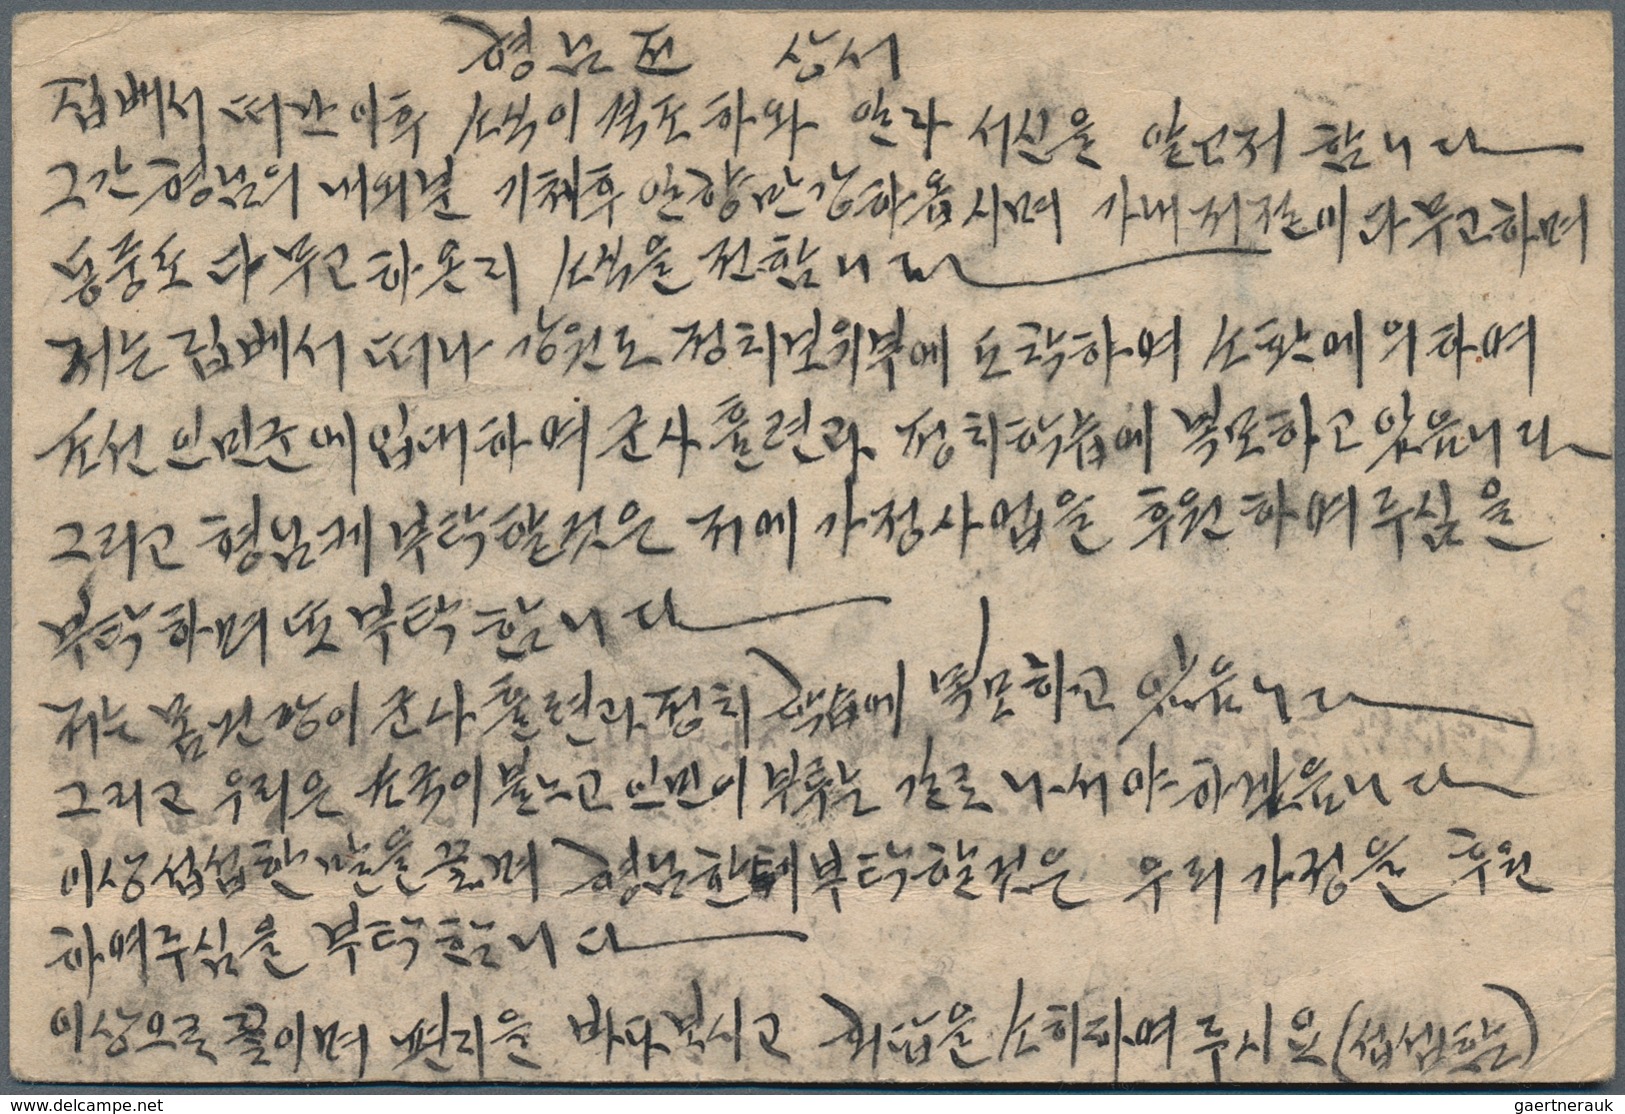 형님전 상서
집에서 떠난이후 소식이 적조하와 안라 서신을 알고저 함니다
그간 형님의 내외분 기체후 안향만강하옵시며 가내제절이 다 무고하며
동중도 다 무고하온지 소식을 전함니다
저는 집에서 떠나 강원도 정치보위부에 도착하여 소환에 의하여
조선 인민군에 입대하여 군사훌련과 정치학습에 복무하고 있음니다
그리고 형님께 부탁할것은 저에 가정사업을 후원하여주심을
부탁하며 또 부탁함니다
저는 몸건강이 군사훌련과 정치학습에 복무하고 있음니다
그리고 우리은 조국이 불느고 인민이 부루는 길로 나서야 하겠음니다
이상 섭섭한 말을 끝이며 형님한테 부탁할것은 우리 가정을 후원
하여주심을 부탁함니다
이상으로 끝이며 편지을 바다보시고 회답을 소히하여 주시요 (섭섭함)
delcampe.net
gaertnerauk